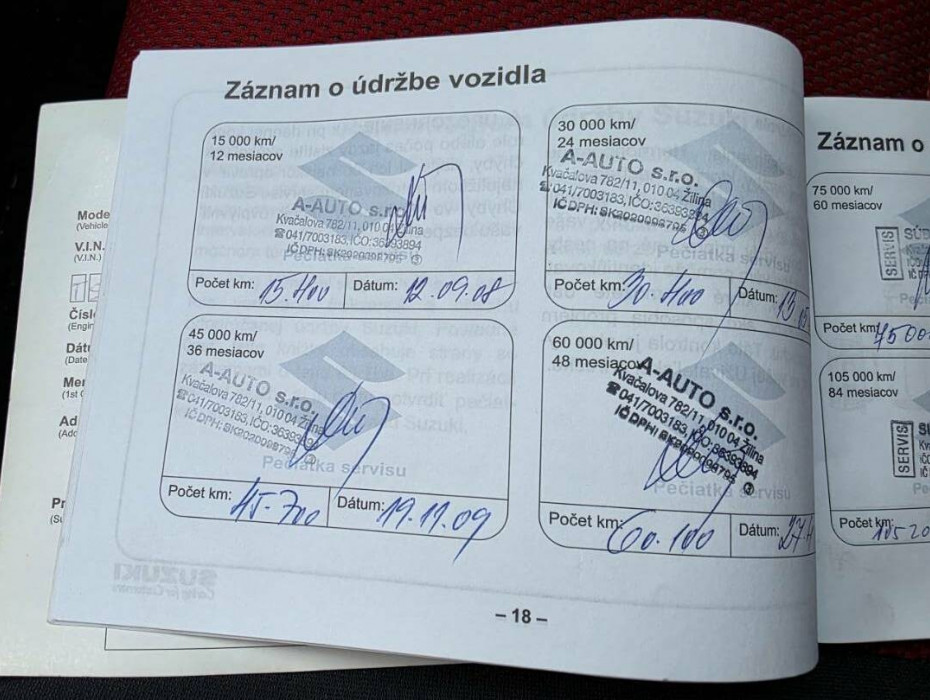 Záznam o údržbe vozidla
15 000 km/
12 mesiacov
A-AUTO s.r.o.
Kvačalova 782/11, 010 04 Žilina
☎041/7003183, IČO:36393894
IČ DPH: SK2020098795
Pečiatka servisu
Počet km: 15.400
Dátum: 12.09.08
30 000 km/
24 mesiacov
A-AUTO s.r.o.
Kvačalova 782/11, 010 04 Žilina
☎041/7003183, IČO:36393894
IČ DPH: SK2020098795 ②
Pečiatka servisu
Počet km: 30.400
Dátum:
45 000 km/
36 mesiacov
A-AUTO s.r.o.
Kvačalova 782/11, 010 04 Žilina
☎041/7003183, IČO:36393894
IČ DPH: SK2020098795
Pečiatka servisu
Počet km: 45.700
Dátum: 19.11.09
60 000 km/
48 mesiacov
A-AUTO s.r.o.
Kvačalova 782/11, 010 04 Žilina
☎041/7003183, IČO:36393894
IČ DPH: SK2020098795 ②
Pečiatka servisu
Počet km: 60.100
Dátum:
– 18 –
SUZUKI
Mode
(Vehicle
V.I.N.
(V.I.N.)
Čísl
(Engin
Dát
(Date
(1st
Ad
Pr
(Su
Záznam o
75 000 km/
60 mesiacov
SERVIS
Počet km:
105 000 km/
84 mesiacov
SERVIS
Počet km: